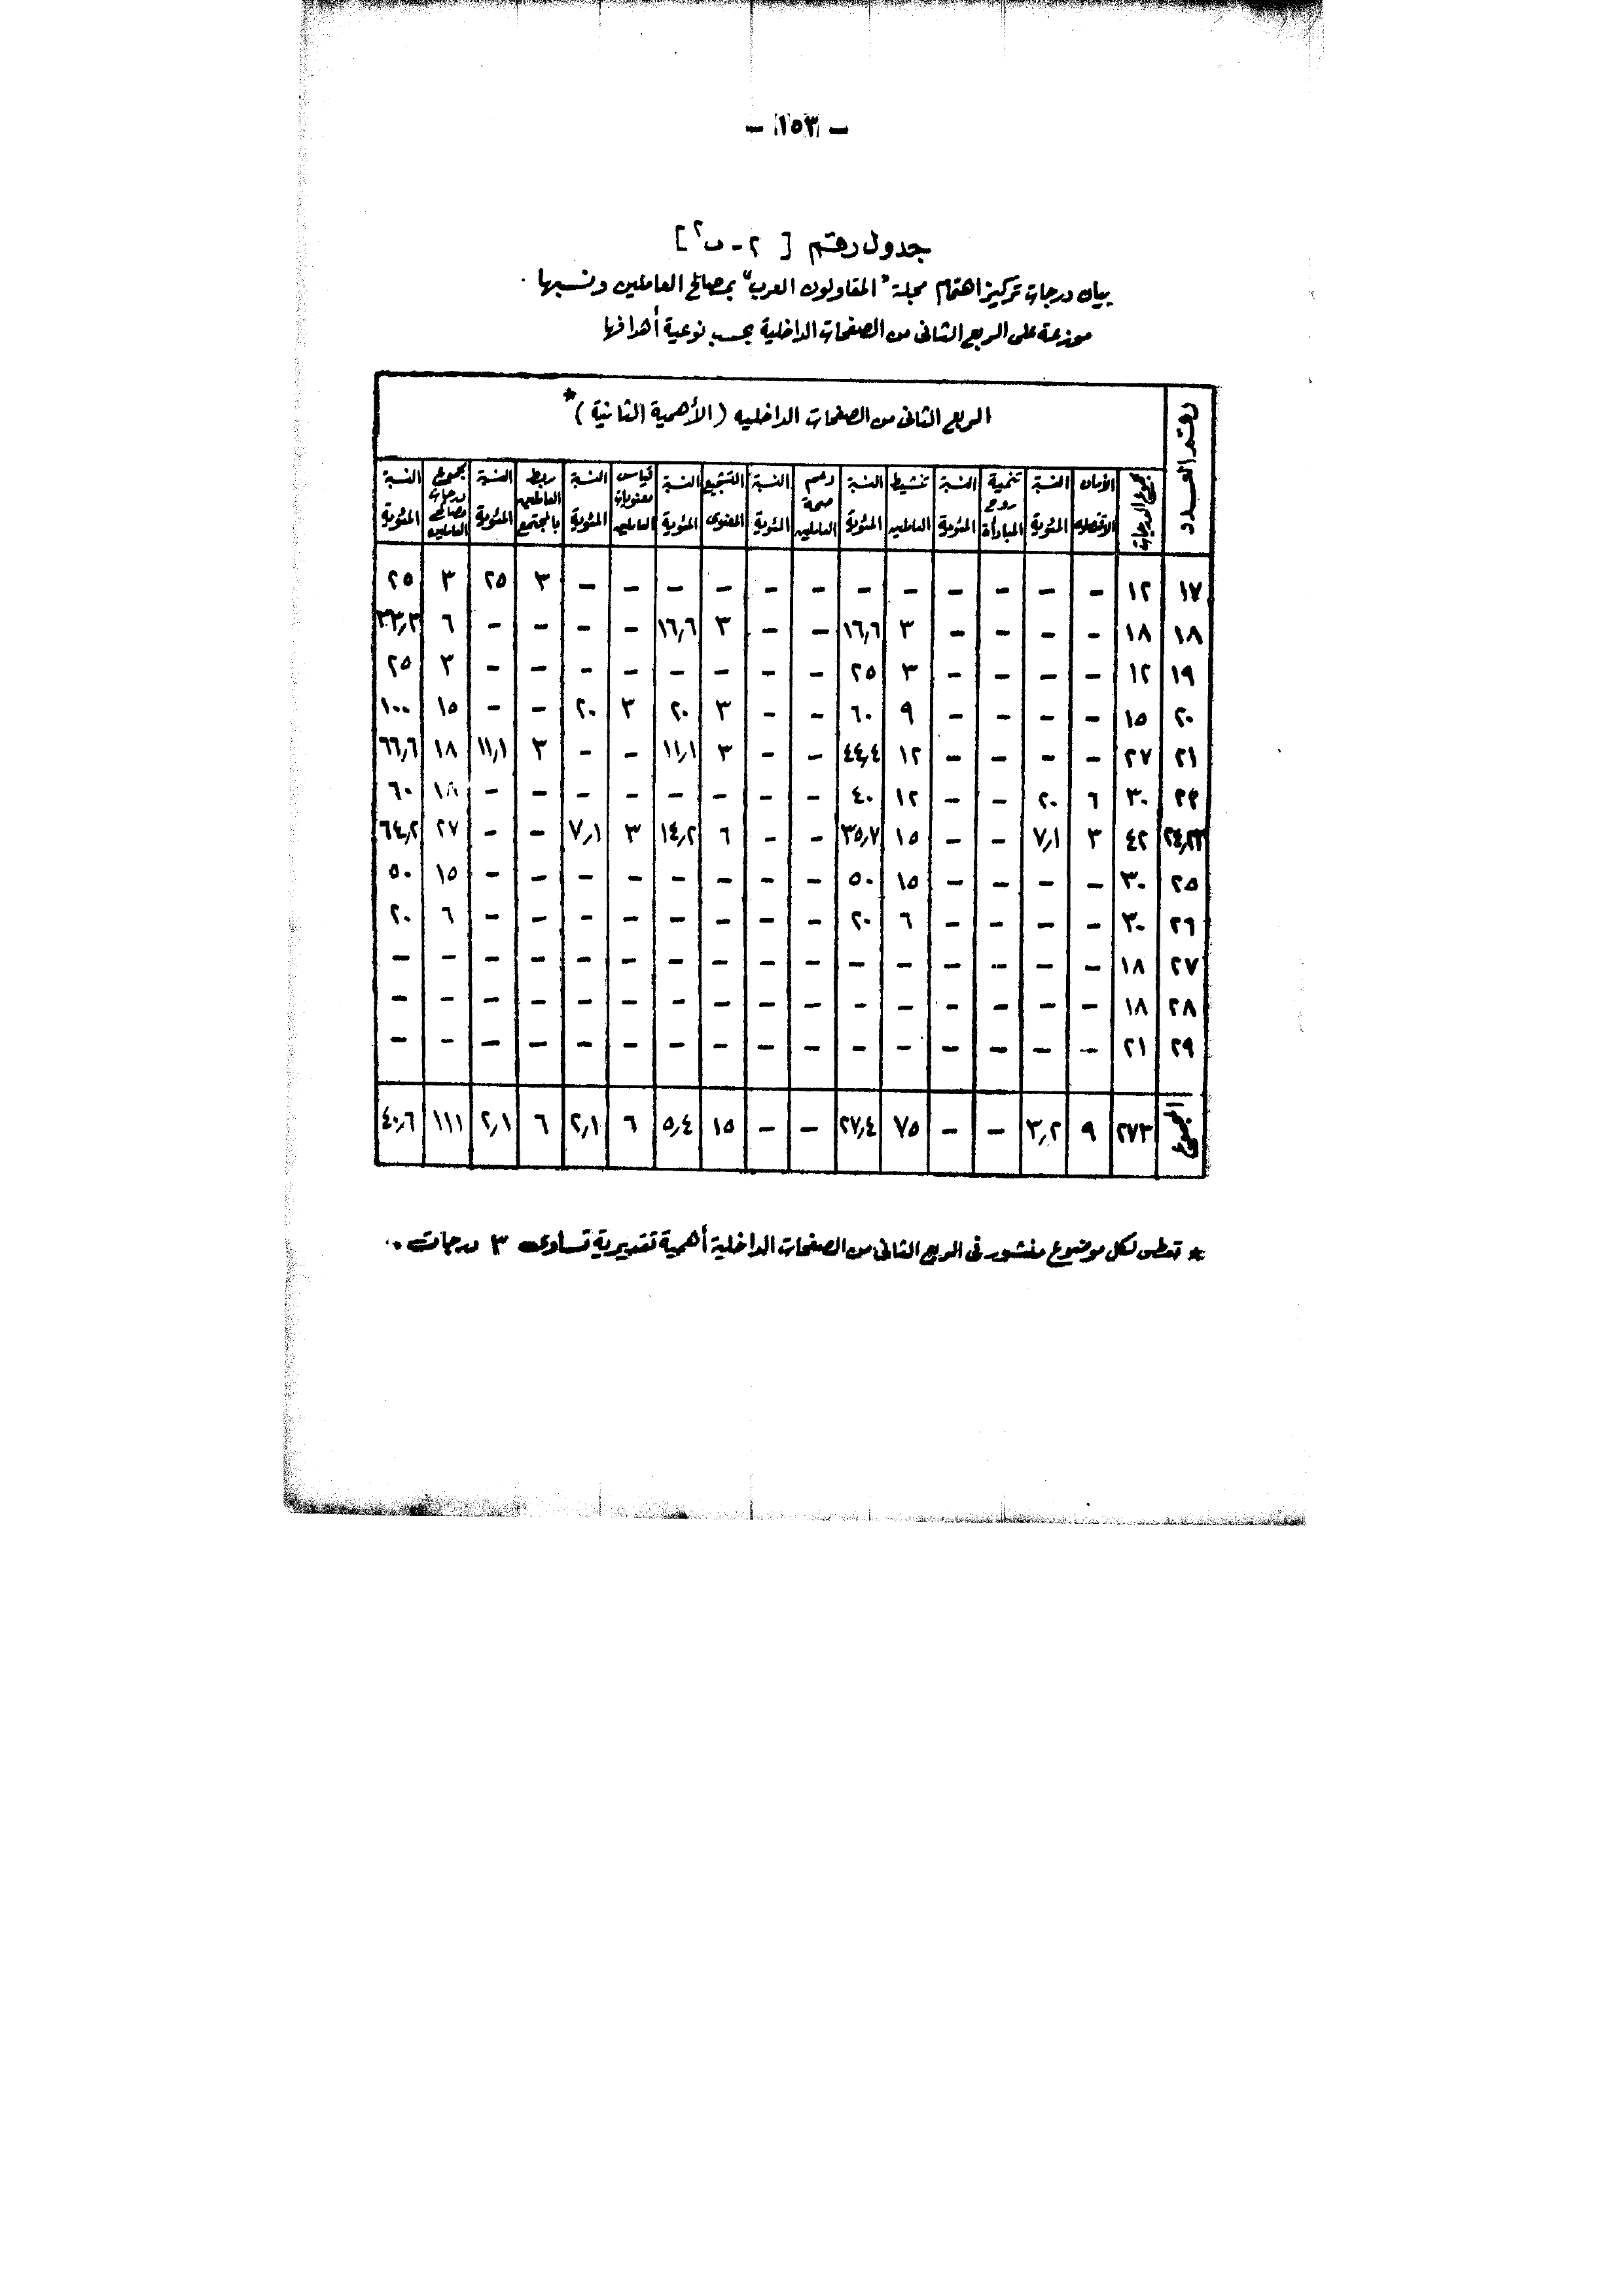 - ١٥٣ -
جدول رقم [ ٢ - ب ٢ ]
بيان درجات تركيز اهتمام مجلة "المقاولون العرب" بمصالح العاملين ونسبها
موزعة على الربع الثانى من الصفحات الداخلية بحسب نوعية أهدافها
رقم العدد | الربع الثانى من الصفحات الداخليه (الأهمية الثانية)*
مجموع الدرجات | الأمان الاقتصادى | النسبة المئوية | تنمية روح المبادأة | النسبة المئوية | تنشيط العاملين | النسبة المئوية | دعم صحة العاملين | النسبة المئوية | التشجيع المعنوى | النسبة المئوية | قياس معنويات العاملين | النسبة المئوية | ربط العاملين بالمجتمع | النسبة المئوية | مجموع درجات مصالح العاملين | النسبة المئوية
١٧ | ١٢ | - | - | - | - | - | - | - | - | - | - | - | - | ٣ | ٢٥ | ٣ | ٢٥
١٨ | ١٨ | - | - | - | - | ٣ | ١٦,٦ | - | - | ٣ | ١٦,٦ | - | - | - | - | ٦ | ٣٣,٣
١٩ | ١٢ | - | - | - | - | ٣ | ٢٥ | - | - | - | - | - | - | - | - | ٣ | ٢٥
٢٠ | ١٥ | - | - | - | - | ٩ | ٦٠ | - | - | ٣ | ٢٠ | ٣ | ٢٠ | - | - | ١٥ | ١٠٠
٢١ | ٢٧ | - | - | - | - | ١٢ | ٤٤,٤ | - | - | ٣ | ١١,١ | - | - | ٣ | ١١,١ | ١٨ | ٦٦,٦
٢٢ | ٣٠ | ٦ | ٢٠ | - | - | ١٢ | ٤٠ | - | - | - | - | - | - | - | - | ١٨ | ٦٠
٢٤,٢٣ | ٤٢ | ٣ | ٧,١ | - | - | ١٥ | ٣٥,٧ | - | - | ٦ | ١٤,٢ | ٣ | ٧,١ | - | - | ٢٧ | ٦٤,٢
٢٥ | ٣٠ | - | - | - | - | ١٥ | ٥٠ | - | - | - | - | - | - | - | - | ١٥ | ٥٠
٢٦ | ٣٠ | - | - | - | - | ٦ | ٢٠ | - | - | - | - | - | - | - | - | ٦ | ٢٠
٢٧ | ١٨ | - | - | - | - | - | - | - | - | - | - | - | - | - | - | - | -
٢٨ | ١٨ | - | - | - | - | - | - | - | - | - | - | - | - | - | - | - | -
٢٩ | ٢١ | - | - | - | - | - | - | - | - | - | - | - | - | - | - | - | -
المجموع | ٢٧٣ | ٩ | ٣,٢ | - | - | ٧٥ | ٢٧,٤ | - | - | ١٥ | ٥,٤ | ٦ | ٢,١ | ٦ | ٢,١ | ١١١ | ٤٠,٦
* تعطى لكل موضوع منشور فى الربع الثانى من الصفحات الداخلية أهمية تقديرية تساوى ٣ درجات .